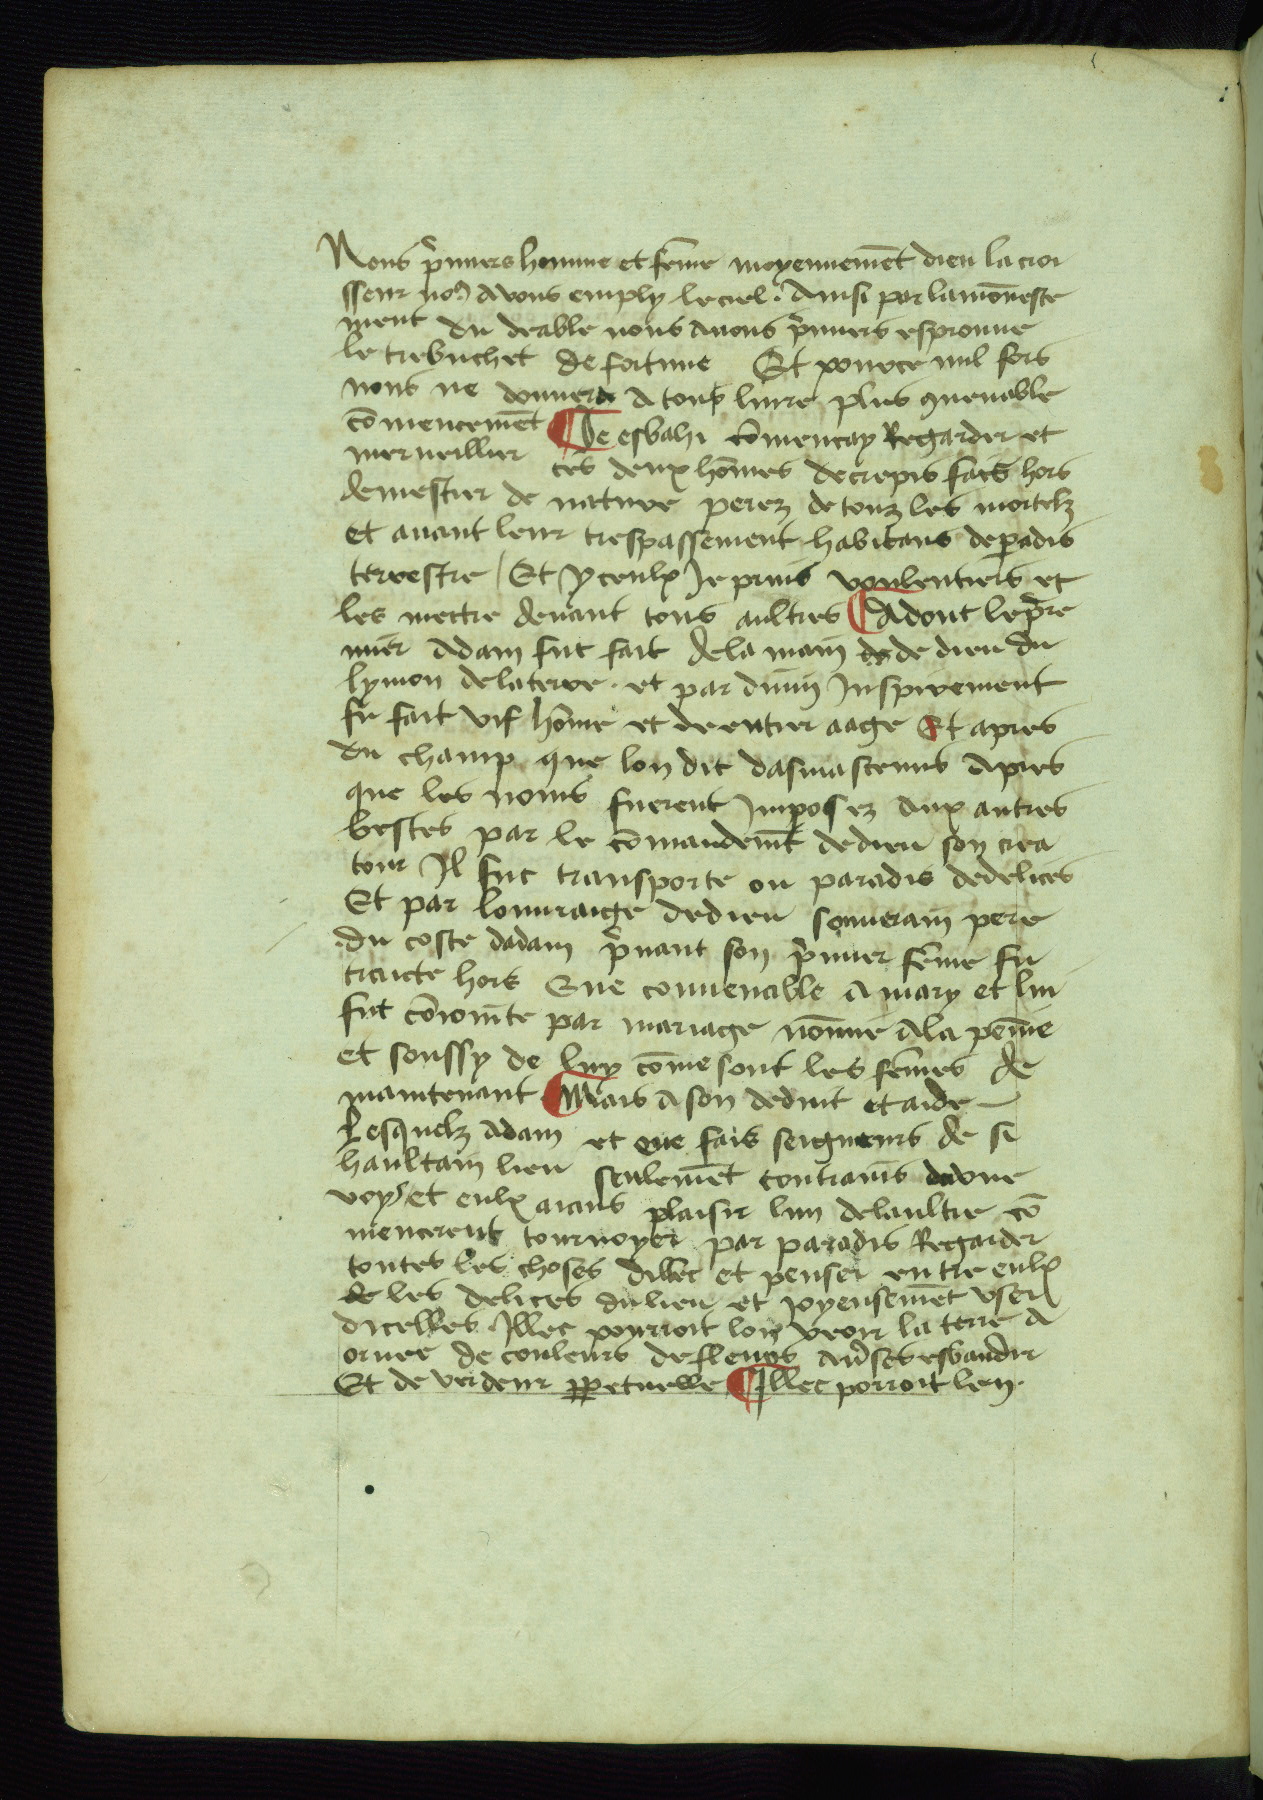 Nous p̃miers homme et fẽme moyennemẽt dieu la croi
sseur no9 avons emply le ciel. Ainsi par lamõneste
ment du deable nous avons p̃miers esprouue
le trebuchet de fortune Et pource nul fors
nous ne donnera a tout liure plus quenable
cõmencemẽt ¶ Je esbahi cõmencay Regarder et
merueillier ces deux hõmes decrepis fais hors
demestier de nature perez de touz les mortelz
et auant leur trespassement habitans de padis
terrestre / Et yceulx Je prins voulentiers et
les mettre deuant tous aultres ¶ Adont le p̃re
mier Adam fut fait de la main de dieu du
lymon de la terre. et par diuin Inspirement
fu fait vif hõme et de entier aage Et apres
du champ que lon dit damascenus Apres
que les noms fuerent Imposez aux autres
bestes par le cõmandemẽt de dieu son crea
tour Il fut transporte ou paradis de delices
Et par louuraige de dieu souuerain pere
du coste dadam p̃nant son p̃mier fẽme fu
traicte hors Eue conuenable a mary et lui
fut cõioincte par mariage nõmie a la penie
et soussy de luy cõme sont les fẽmes de
maintenant ¶ Mais a son deduit et aide
Lesquelz Adam et eue fais seigneurs de si
haultain lieu seulemẽt contrains dune
voys et eulx aians plaisir lun de laultre cõ
mencerent tournoyer par paradis Regarder
toutes les choses dillec et penser entre eulx
de les delices du lieu et joyeusemẽt vser
dicelles. Illec pourroit lon veoir la terre a
ornee de couleurs de fleurs diũses esbaudir
Et de verdeur ppetuelle ¶ Illec porroit len.